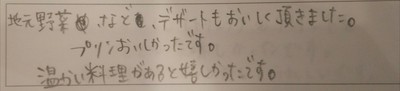 地元野菜、など、デザートもおいしく頂きました。
プリンおいしかったです。
温かい料理があると嬉しかったです。